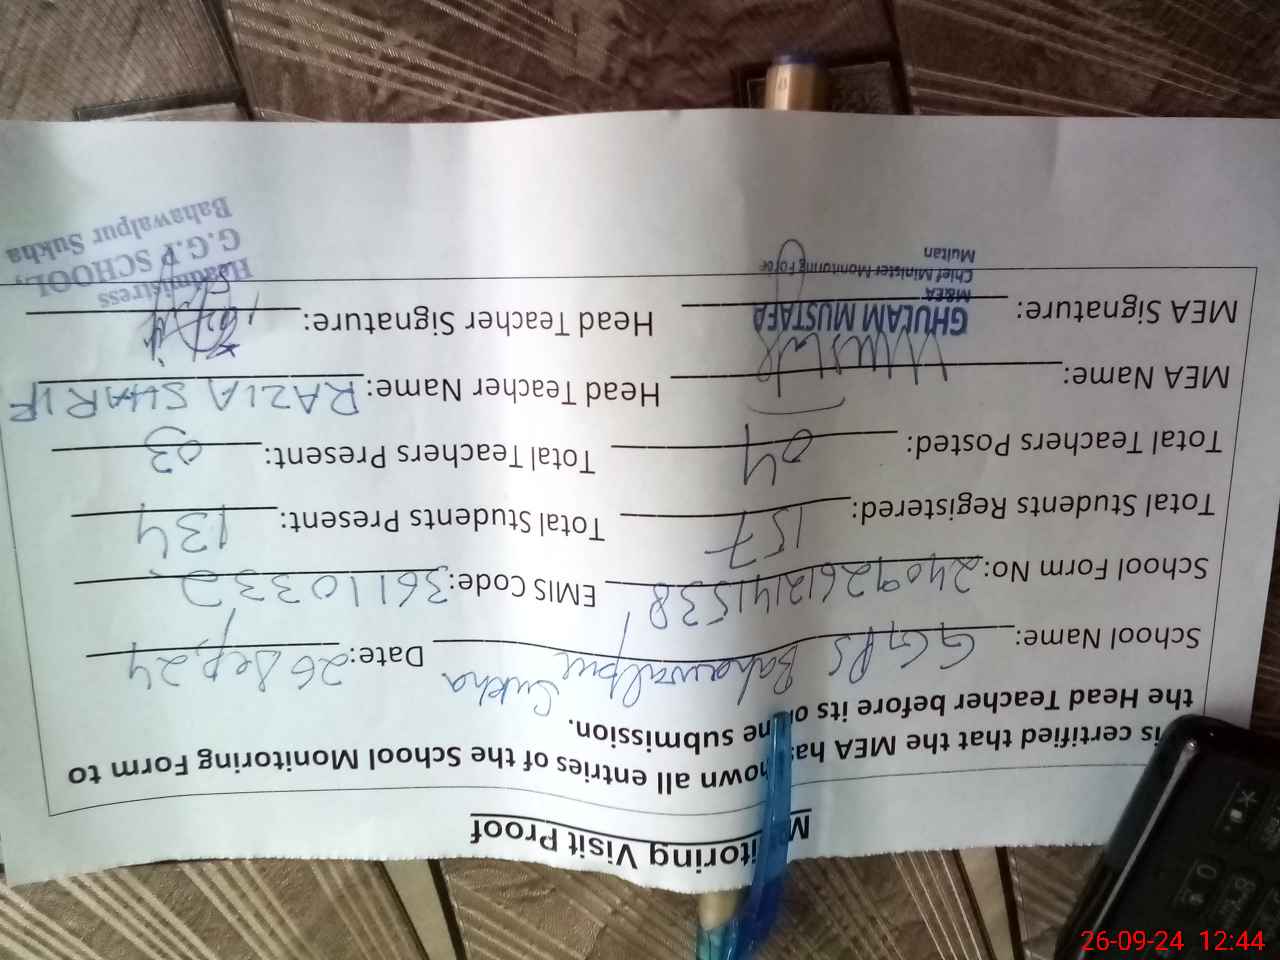 Monitoring Visit Proof
is certified that the MEA has shown all entries of the School Monitoring Form to
the Head Teacher before its online submission.
School Name: GGPS Bahawalpur Sukha Date: 26 Sep, 24
School Form No: 240926121411538 EMIS Code: 36110332
Total Students Registered: 157 Total Students Present: 134
Total Teachers Posted: 04 Total Teachers Present: 03
MEA Name: Head Teacher Name: RAZIA SHARIF
MEA Signature: Head Teacher Signature:
GHULAM MUSTAFA
M&EA
Chief Minister Monitoring Force
Multan
Headmistress
G.G.P SCHOOL,
Bahawalpur Sukha
26-09-24 12:44